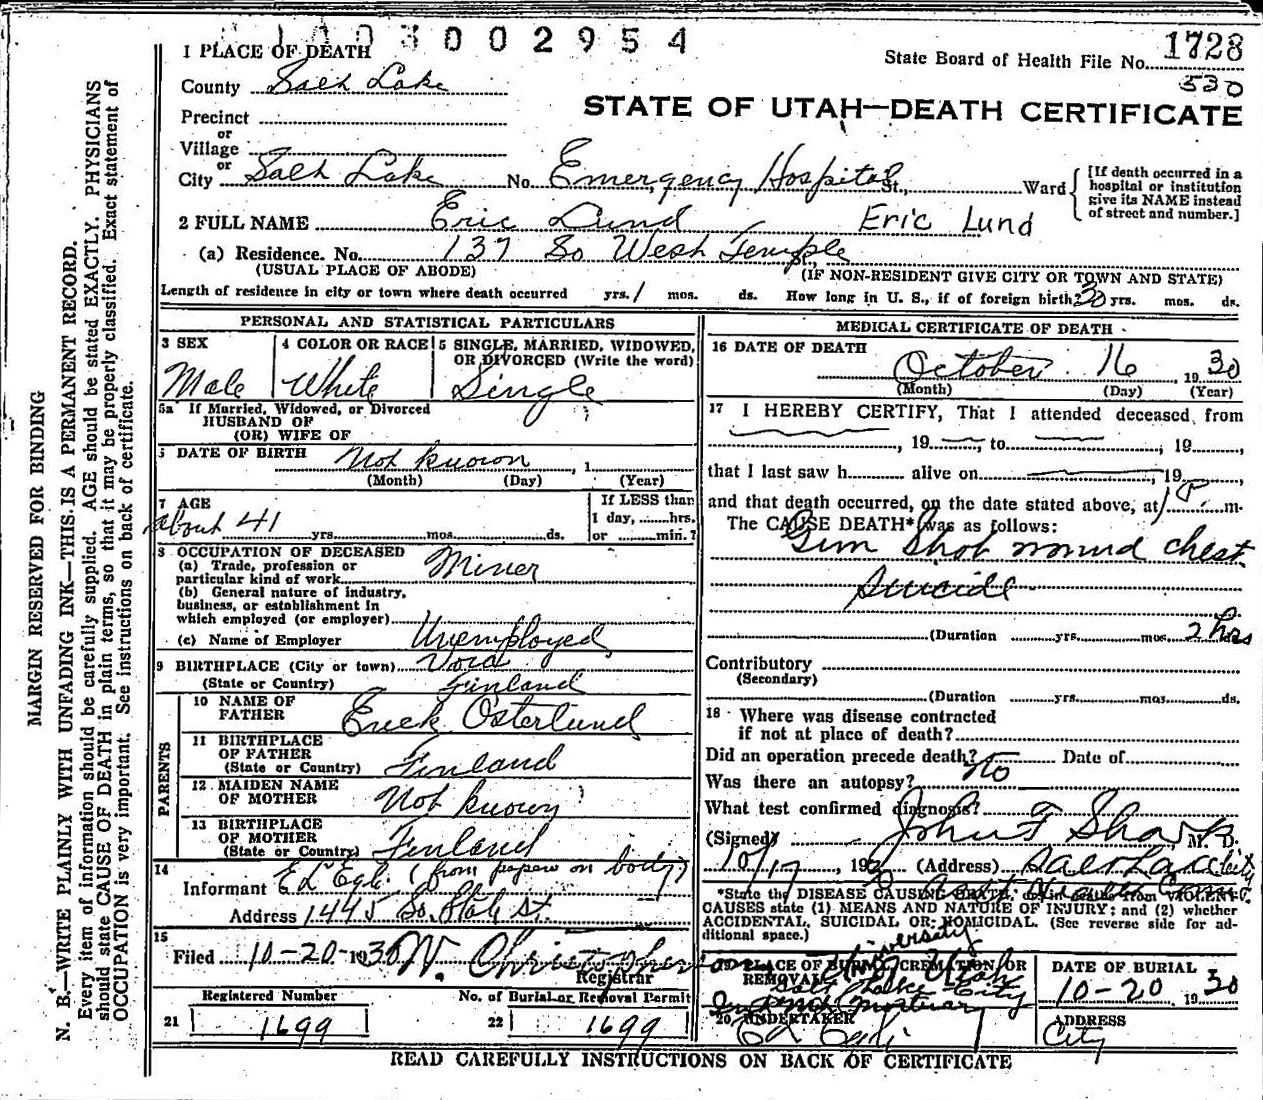 1003002954
State Board of Health File No. 1728
530
STATE OF UTAH—DEATH CERTIFICATE
1 PLACE OF DEATH
County Salt Lake
Precinct
or
Village
or
City Salt Lake No. Emergency Hospital St., Ward
[If death occurred in a
hospital or institution
give its NAME instead
of street and number.]
2 FULL NAME Eric Lund Eric Lund
(a) Residence. No. 137 So West Temple
(USUAL PLACE OF ABODE) (IF NON-RESIDENT GIVE CITY OR TOWN AND STATE)
Length of residence in city or town where death occurred yrs. 1 mos. ds. How long in U. S., if of foreign birth? 30 yrs. mos. ds.
PERSONAL AND STATISTICAL PARTICULARS
3 SEX
Male
4 COLOR OR RACE
White
5 SINGLE, MARRIED, WIDOWED,
OR DIVORCED (Write the word)
Single
5a If Married, Widowed, or Divorced
HUSBAND OF
(OR) WIFE OF
DATE OF BIRTH Not known , 1
(Month) (Day) (Year)
7 AGE
about 41 yrs. mos. ds.
If LESS than
1 day, hrs.
or min.?
8 OCCUPATION OF DECEASED
(a) Trade, profession or
particular kind of work Miner
(b) General nature of industry,
business, or establishment in
which employed (or employer)
(c) Name of Employer Unemployed
9 BIRTHPLACE (City or town) Vora
(State or Country) Finland
PARENTS
10 NAME OF
FATHER Erick Osterlund
11 BIRTHPLACE
OF FATHER
(State or Country) Finland
12 MAIDEN NAME
OF MOTHER Not known
13 BIRTHPLACE
OF MOTHER
(State or Country) Finland
14
Informant Ed Egli (from papers on body)
Address 1445 So. State St.
15
Filed 10-20-1930 W. Christopherson
Registrar
Registered Number
21 1699
No. of Burial or Removal Permit
22 1699
MEDICAL CERTIFICATE OF DEATH
16 DATE OF DEATH
October 16 , 1930
(Month) (Day) (Year)
17 I HEREBY CERTIFY, That I attended deceased from
, 19 , to , 19 ,
that I last saw h alive on , 19 ,
and that death occurred, on the date stated above, at 1 P m.
The CAUSE DEATH* was as follows:
Gun Shot wound chest
Suicide
(Duration yrs. mos. 2 hrs
Contributory
(Secondary)
(Duration yrs. mos. ds.
18 Where was disease contracted
if not at place of death?
Did an operation precede death? Date of
Was there an autopsy? No
What test confirmed diagnosis?
(Signed) John F Sharp, M. D.
10/17, 193 (Address) Salt Lake City
*State the DISEASE CAUSING DEATH, or in deaths from VIOLENT
CAUSES state (1) MEANS AND NATURE OF INJURY; and (2) whether
ACCIDENTAL, SUICIDAL OR HOMICIDAL. (See reverse side for ad-
ditional space.)
19 PLACE OF BURIAL, CREMATION OR
REMOVAL University of Utah
Salt Lake City
20 UNDERTAKER
Ed Egli
DATE OF BURIAL
10-20 1930
ADDRESS
City
READ CAREFULLY INSTRUCTIONS ON BACK OF CERTIFICATE
MARGIN RESERVED FOR BINDING
N. B.—WRITE PLAINLY WITH UNFADING INK—THIS IS A PERMANENT RECORD.
Every item of information should be carefully supplied. AGE should be stated EXACTLY. PHYSICIANS
should state CAUSE OF DEATH in plain terms, so that it may be properly classified. Exact statement of
OCCUPATION is very important. See instructions on back of certificate.